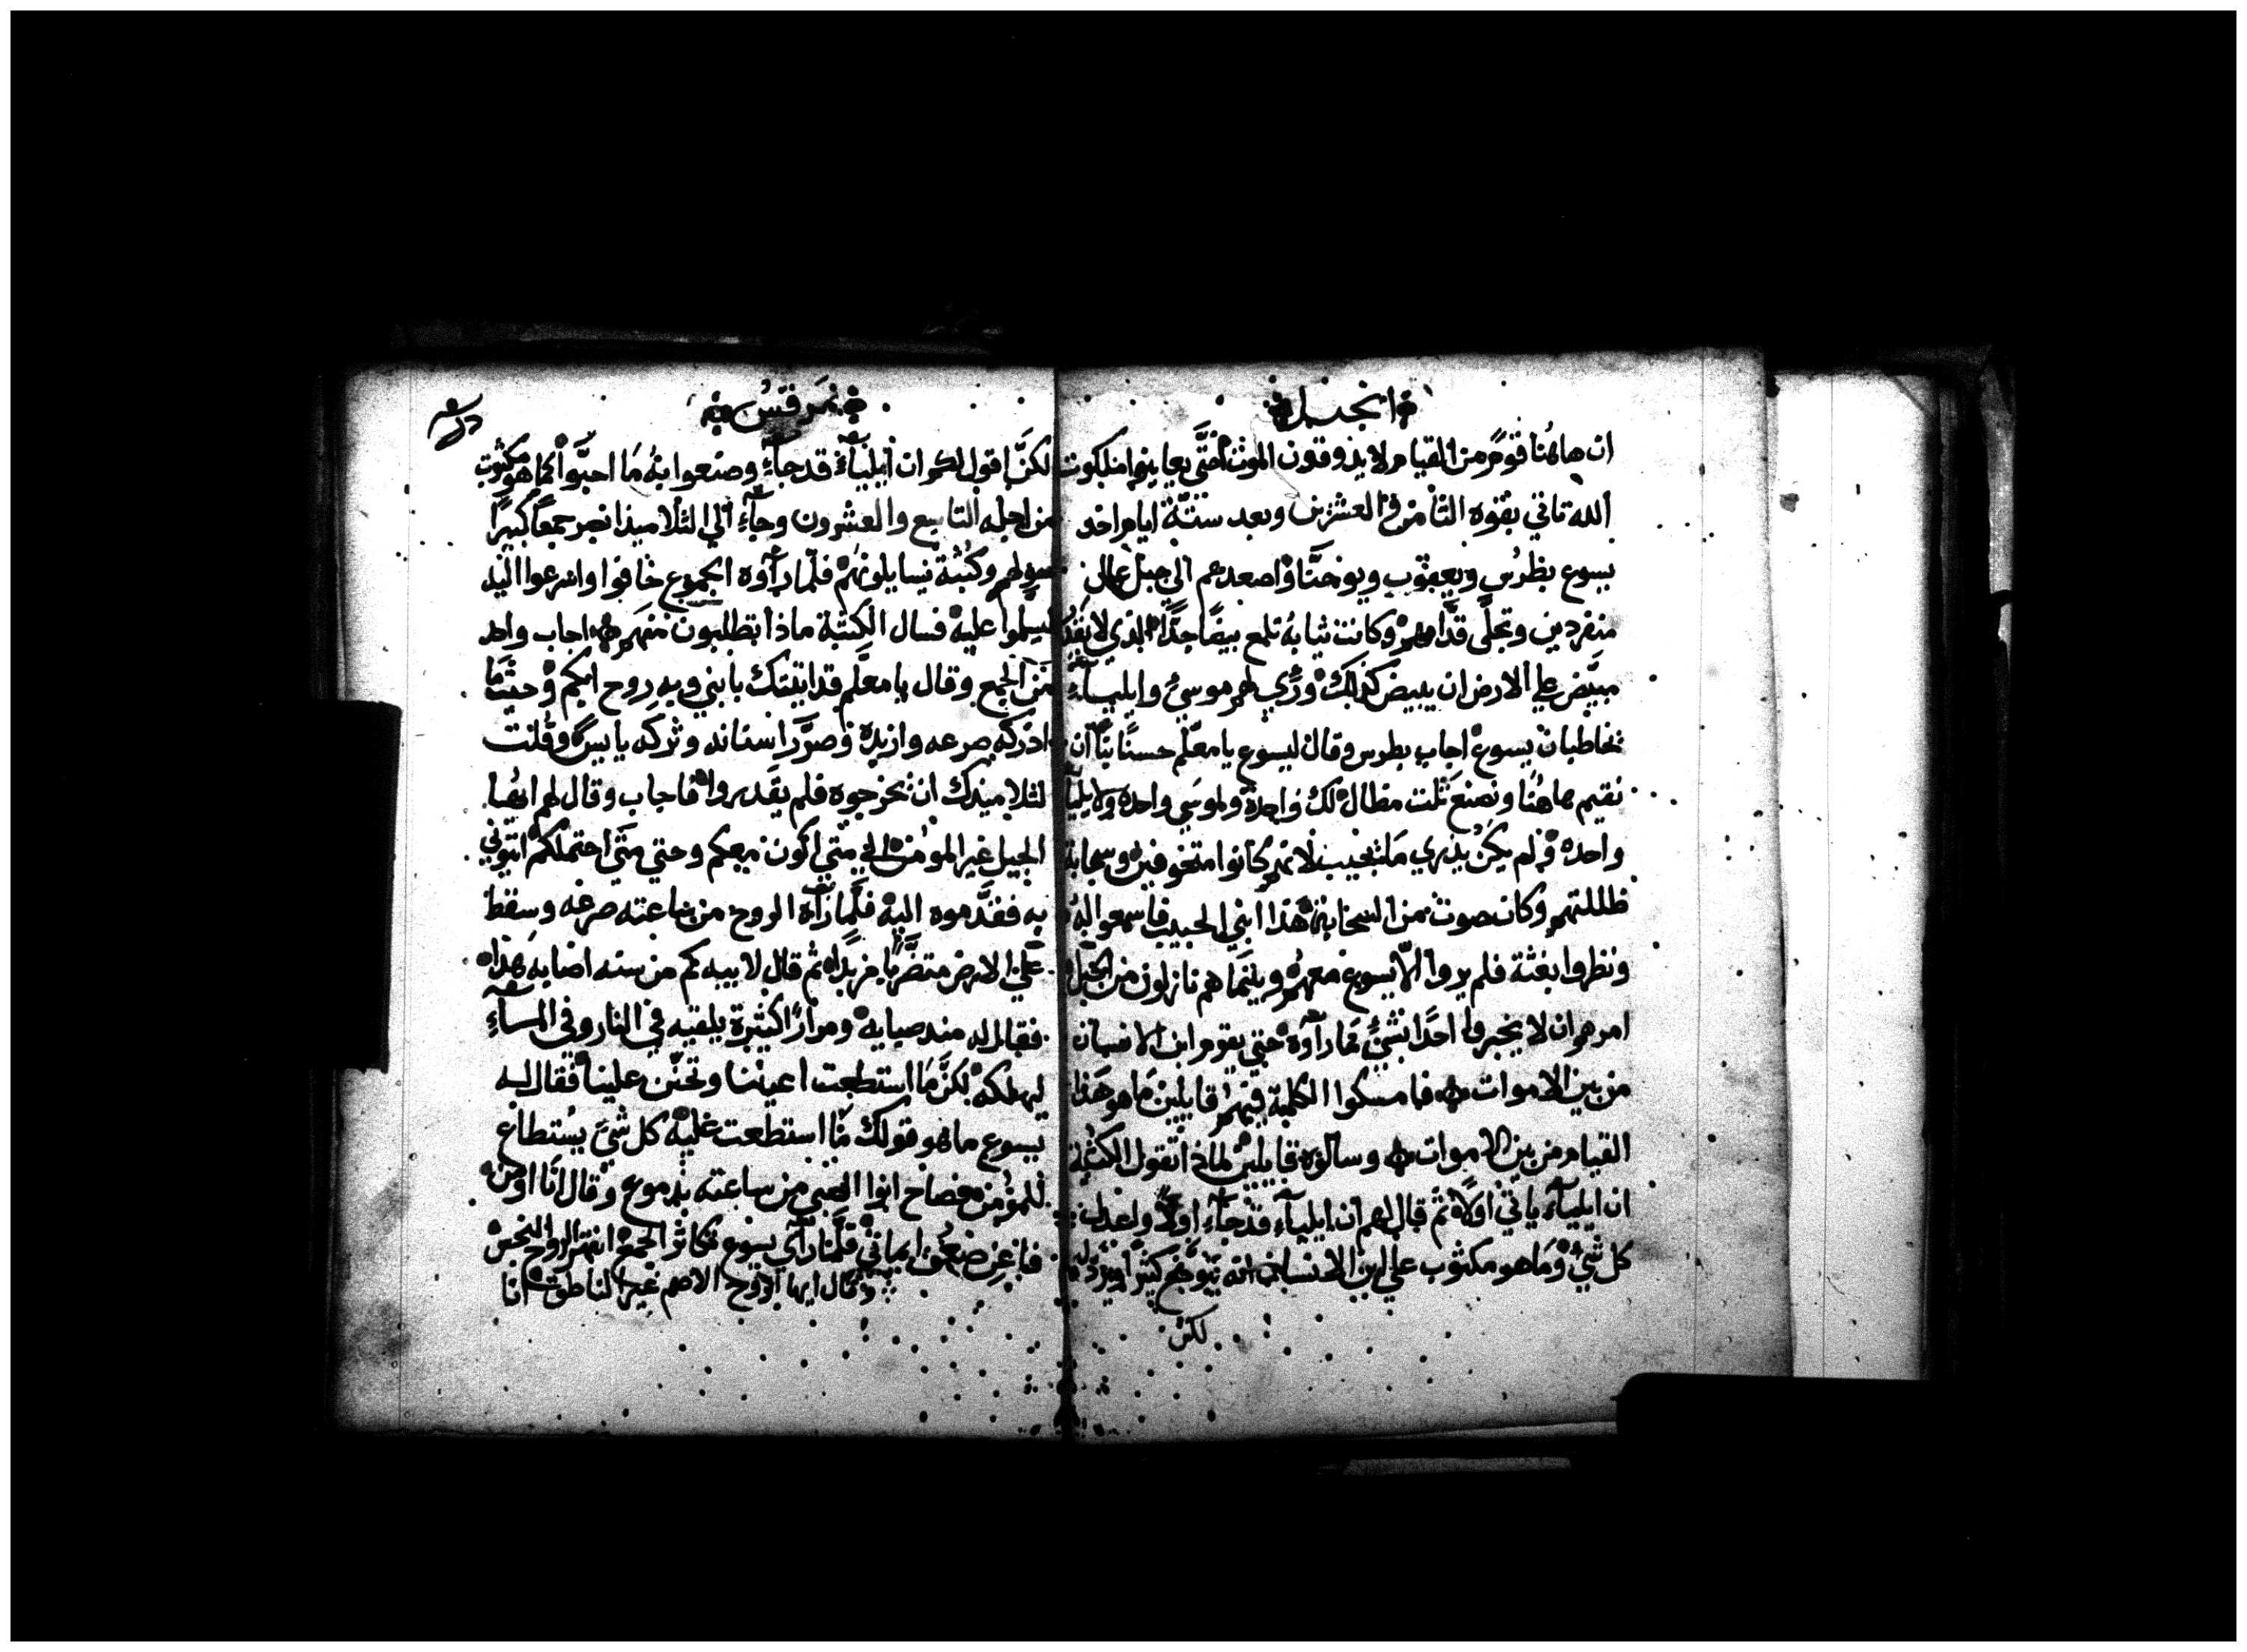 انجيل
ان هاهُنا قومٌ من القيام لا يذوقون الموت حتَّى يعاينوا ملكوت
الله تاتي بقوه الثامن والعشرين وبعد ستّة ايام اخد
يسوع بطرُس ويعقوب ويوحنَّا واصعدهم الي جبل عال
منفردين وتجلَّى قدَّامهم وكانت ثيابهُ تلمع بيضًا جدًّا الذي لا يقدر
مبيَّض علي الارض ان يبيض كذلك ورُي لهم موسيُ وايلياء
يخاطبان يسوع اجاب بطرس وقال ليسوع يا معلّم حسنًا بنا ان
نقيم هاهُنا ونصنع ثلث مظال لك واحدة ولموسي واحده ولايليَّا
واحده ولم يكن يدري مَا يجيب لانهم كانوا متخوفين وسحابة
ظللتهم وكان صوت من السحابة هذا ابني الحبيب فاسمعوا لهُ
ونظروا بغثة فلم يروا الّا يسوع معهُم وبينما هم نازلون من الجبل
امرهم ان لا يخبروا احدًا بشئٍ مما راَوه حتي يقوم ابن الانسان
من بين الاموات فامسكوا الكلمة فيهم قايلين مَا هو هَذا
القيام من بين الاموات وسالوه قايلين لماذا تقول الكتبة
ان ايلياء ياتي اولًا ثم قال لهم ان ايلياء قد جاء اولًا
كل شئٍ ومَا هو مكتوب علي ابن الانسان انه يتوجّع كثيرًا ويزدل
لكن
مَرقسُ
لكنَّ اقول لكم ان ايلياء قد جاء وصنعوا بهُ مَا احبَّوا كما هو مكتوب
من اجله التاسع والعشرون وجاء الي التلاميذ انصر جمعًا كبيرًا
حولهم وكتبة يسايلونهُم فلمَّا راَوه الجموع خافوا واسرعوا اليه
ليسلموا عليه فسال الكتبة ماذا تطلبون منهم اجاب واحد
من الجمع وقال يا معلَّم قد اتيتك بابني وبه روح ابكم وحيثمَا
ادركه صرعه وازبده وصرَّر اسنانه وتركه يابس وقلت
لتلاميذك ان يخرجوه فلم يقَدروا فاجاب وقال لهم ايُها
الجيل غير المومُن الي متي اكون معكم وحتي متَى احتملكم ايتوني
به فقدَّموه اليه فلَّما راَه الروح من ساعته صرعه وسقط
علي الارض متضرَّبًا مزبدًا ثم قال لابيه كم من سنه اصابه هَذا
فقال له مند صبايه ومرارًا كثيرة يلقيه في النار وفي المساء
ليهلكه لكنَّ مَا استطعت اعيننا وتحنّن علينا فقال له
يسوع ما هو قولك مَا استطعت عليه كل شئٍ يُستطاع
للمؤمن فصاح ابوا الصبي من ساعته بدموع وقال انَا اومن
فاعن ضعف ايماني فلَّما راَي يسوع تكاثر الجمع انتهر الروح النجس
وقال ايها الروح الاصم غير الناطق انا